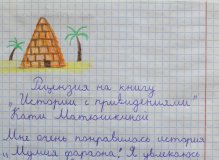 Рецензия на книгу
„Истории с привидениями"
Кати Матюшкиной
Мне очень понравилась история
„Мумия фараона". Я увлекаюсь